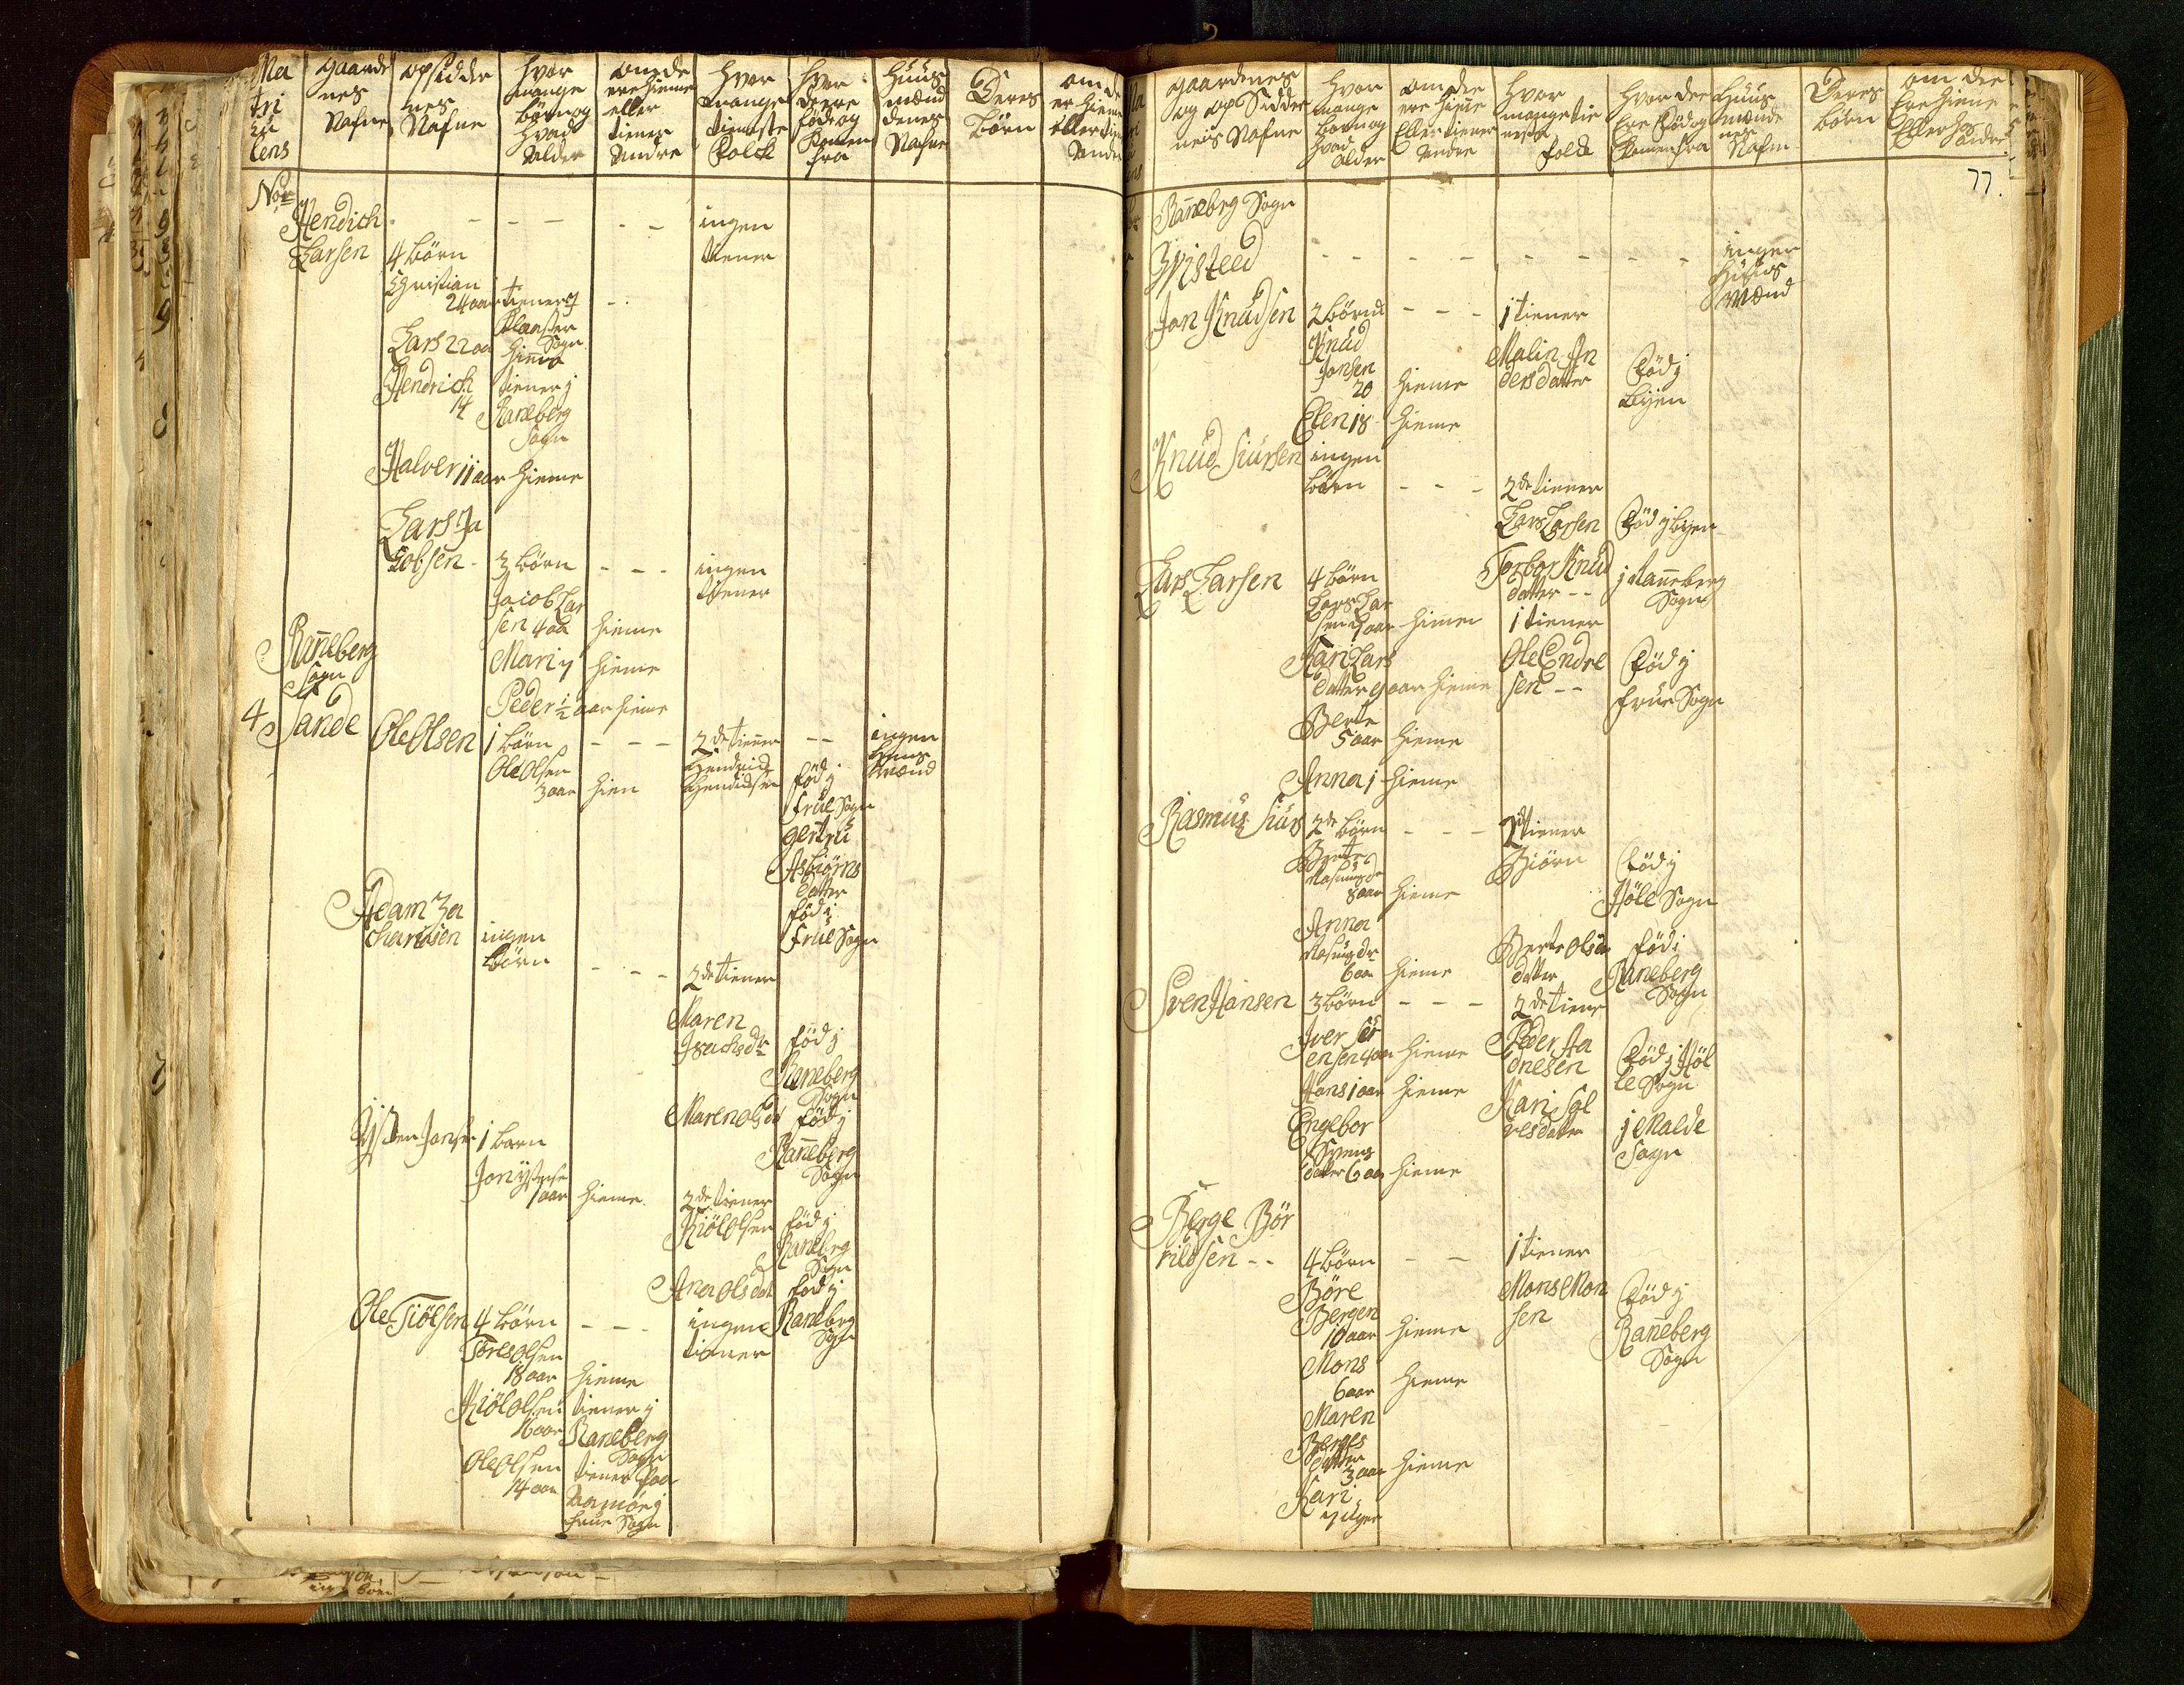 Ma
tri
cu
lens
Noe
gaarde
nes
Nafne
opsidder
nes
Nafne
hvor
mange
børn og
hvad
alder
om de
ere hieme
eller
tiener
andre
hvor
mange
tieneste
folck
hvor
de ere
føde og
komen
fra
Huus
mænd
denes
Nafne
Deres
børn
om de
er hieme
eller tien
andre
Hendich
Larsen
- - -
- -
ingen
tiener
4 børn
Christian
24 aar
tiener j
Klaaster
Sogn
- -
Lars 22 aa
hieme
Hendrich
14
tiener j
Raneberg
Sogn
Halver 11 aar
hieme
Lars Ja
cobsen -
3 børn
- - -
ingen
tiener
Jacob Lar
sen 4 aa
hieme
Mari 7
hieme
Peder ½ aar
hieme
Raneberg
Sogn
4
Sande
Ole Olsen
1 børn
- - -
2de tiener
- -
ingen
huus
mænd
Ole Olsen
3 aar
hiem
Hendrich
Hendricksen
fød j
frue Sogn
gertru
Asbiørns
datter
fød j
frue Sogn
Adam Za
chariasen
ingen
børn
- - -
2de tiener
Maren
Isachsdr
fød j
Raneberg
Sogn
Maren olsdr
fød j
Raneberg
Sogn
Østen Jonsen
1 barn
Jon
1 aar
hieme
2de tiener
Kiøl Olsen
fød j
Raneberg
Sogn
Ana Olsdat
fød j
Raneberg
Sogn
Ole Tiølsen
4 børn
- - -
ingen
tiener
Tores Olsen
18 aar
hieme
Kiøl Olsen
16 aar
tiener j
Raneberg
Sogn
Ole Olsen
14 aar
tiener paa
j
frue Sogn
77.
gaardenes
og opsidder
neis Nafne
hvor
mange
børn og
hvad
alder
om die
ere hieme
eller tiener
andre
hvor
mange tie
neste
folck
hvor der
ere fød og
komen fra
Huus
mænde
nes
Nafne
Deres
børn
om die
ere hieme
eller hos
andre
Raneberg Sogn
Wisteed
- - - - - - - -
ingen
huus
mænd
Jon Knudsen
2 børn
- - -
1 tiener
Knud
Jonsen
20
hieme
Malin An
dersdatter
fød j
byen
Elen 18
hieme
Knud Siursen
ingen
børn
- - -
2de tiener
Lars Larsen
fød j byen
Torbor Knud
datter - -
j Raneberg
Sogn
Lars Larsen
4 børn
Lars Lar
sen 9 aar
hieme
1 tiener
Kari Lars
datter 9 aar
hieme
Ole Endre
sen - -
fød j
frue Sogn
Berte
5 aar
hieme
Anna 1
hieme
Rasmus Siurs
2de børn
- - -
2 tiener
Berte
Rasmusdr
8 aar
hieme
Biørn
fød j
Høle Sogn
Anna
Rasmusdr
6 aar
hieme
Berte Olsd
datter
fød j
Raneberg
Sogn
Sven Hansen
3 børn
- - -
2de tiener
Iver Sø
ensen 4 aar
hieme
Peder Aa
dnesen
fød j Høl
le Sogn
Hans 1 aar
hieme
Kari Sal
vesdatter
j Malde
Sogn
Engebor
Svens
datter 6 aar
hieme
Berge Bør
rildsen - -
4 børn
- -
1 tiener
Børe
Bergen
10 aar
hieme
Mons Mon
sen
fød j
Raneberg
Sogn
Mons
6 aar
hieme
Maren
Berges
datter
3 aar
hieme
Kari
7 uger